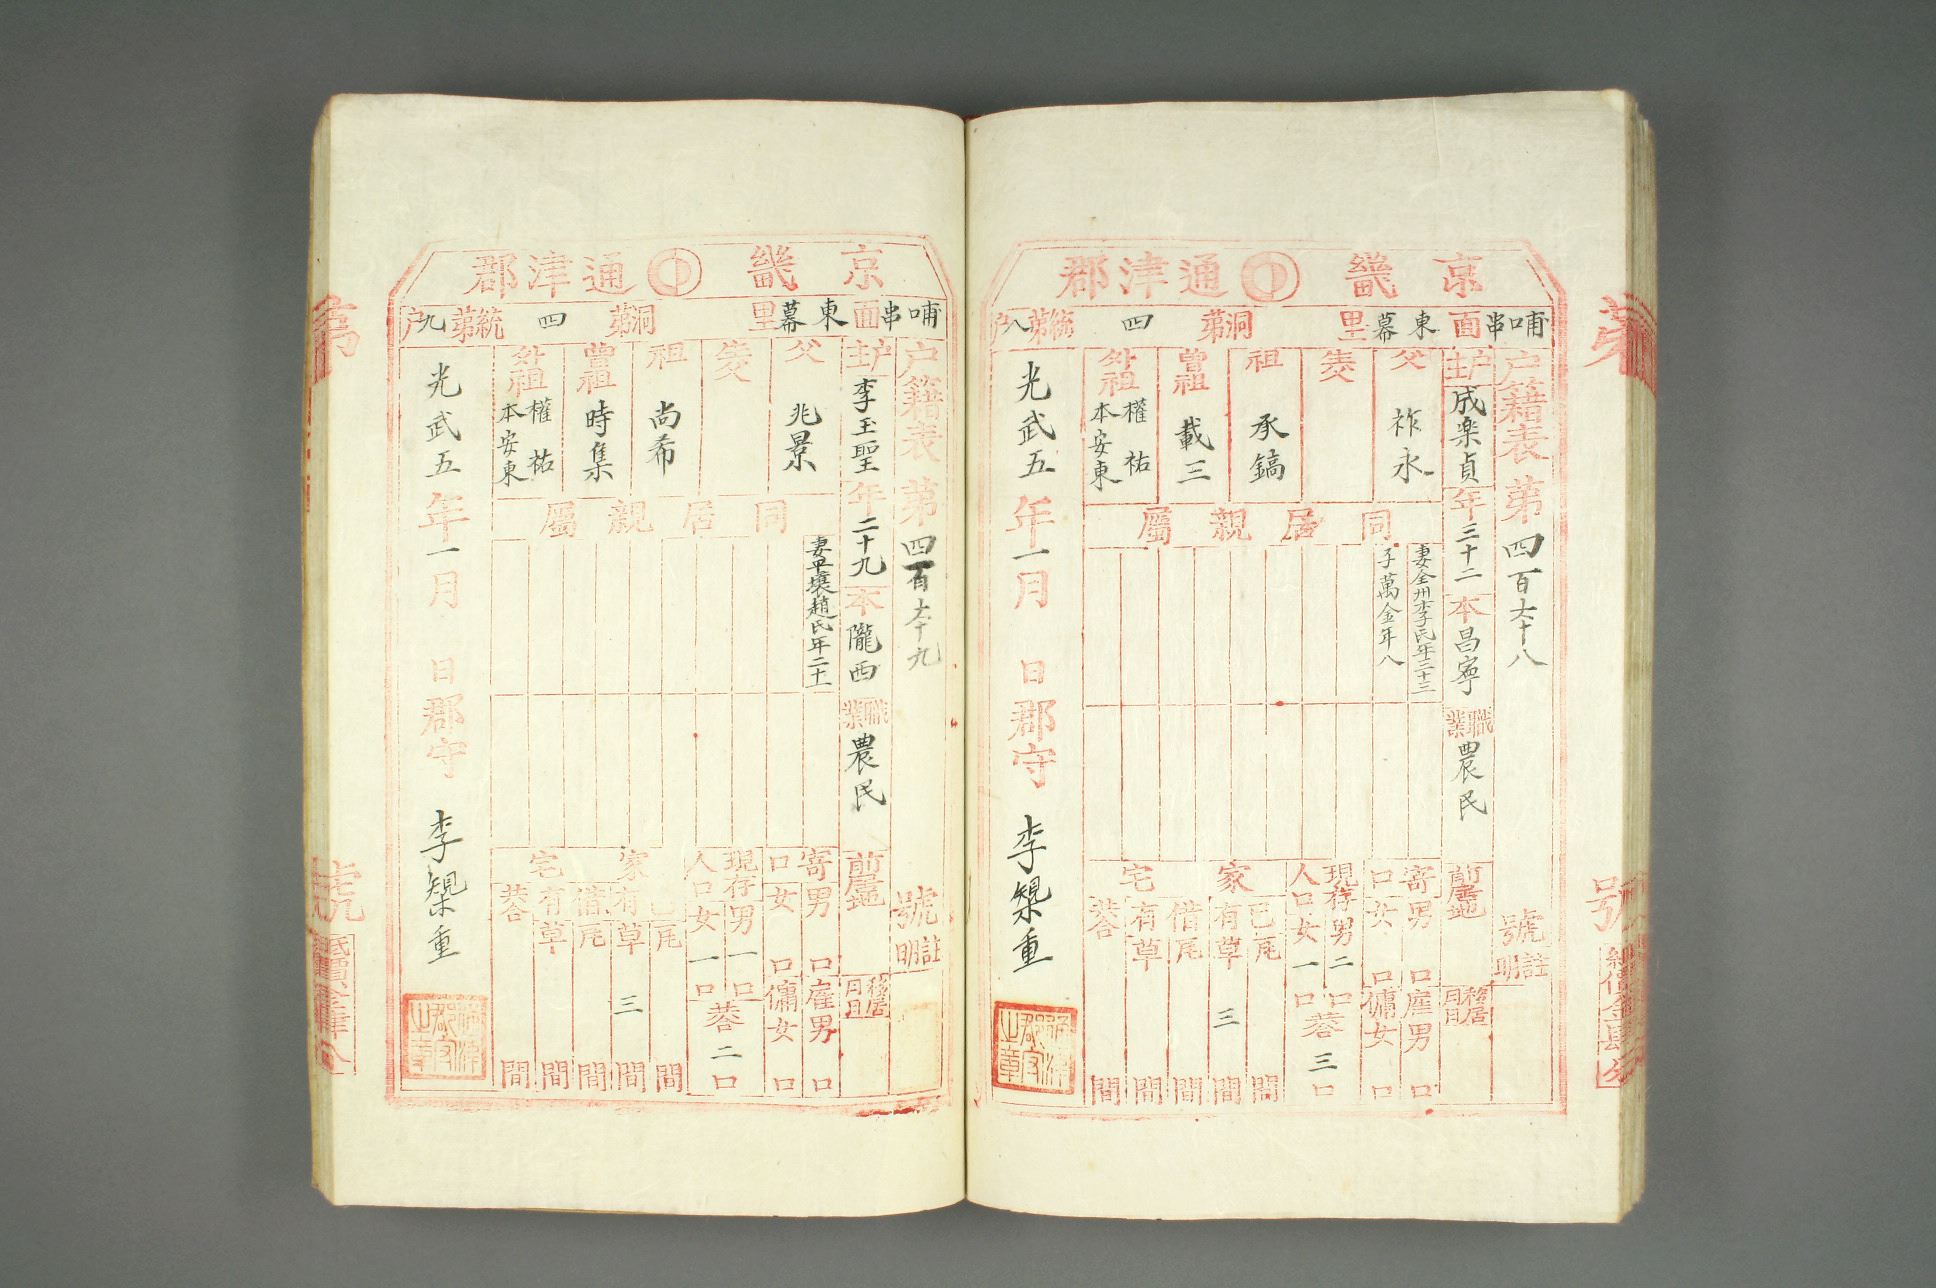 京畿 通津郡
哺串面 東幕里 洞第 四 統第 八 户
户籍表 第 四百六十八 號
註明
户主 成楽貞 年 三十二 本 昌寧 職業 農民 前居地 移居 月日
父 祚永
生父
祖 承鎬
曾祖 載三
外祖 權祐 本安東
同居親屬
妻全州李氏年三十三
子萬金年八
寄口 男 口 女 口
雇男 口 傭女 口
現存人口 男 二 口 女 一 口 共 三 口
家宅 已有 瓦 間 草 三 間 借有 瓦 間 草 間 共 間
光武五年一月 日 郡守 李榘重
通津郡守之章
京畿 通津郡
哺串面 東幕里 洞第 四 統第 九 户
户籍表 第 四百六十九 號
註明
户主 李玉聖 年 二十九 本 隴西 職業 農民 前居地 移居 月日
父 兆景
生父
祖 尚希
曾祖 時集
外祖 權祐 本安東
同居親屬
妻平壤趙氏年二十一
寄口 男 口 女 口
雇男 口 傭女 口
現存人口 男 一 口 女 一 口 共 二 口
家宅 已有 瓦 間 草 三 間 借有 瓦 間 草 間 共 間
光武五年一月 日 郡守 李榘重
通津郡守之章